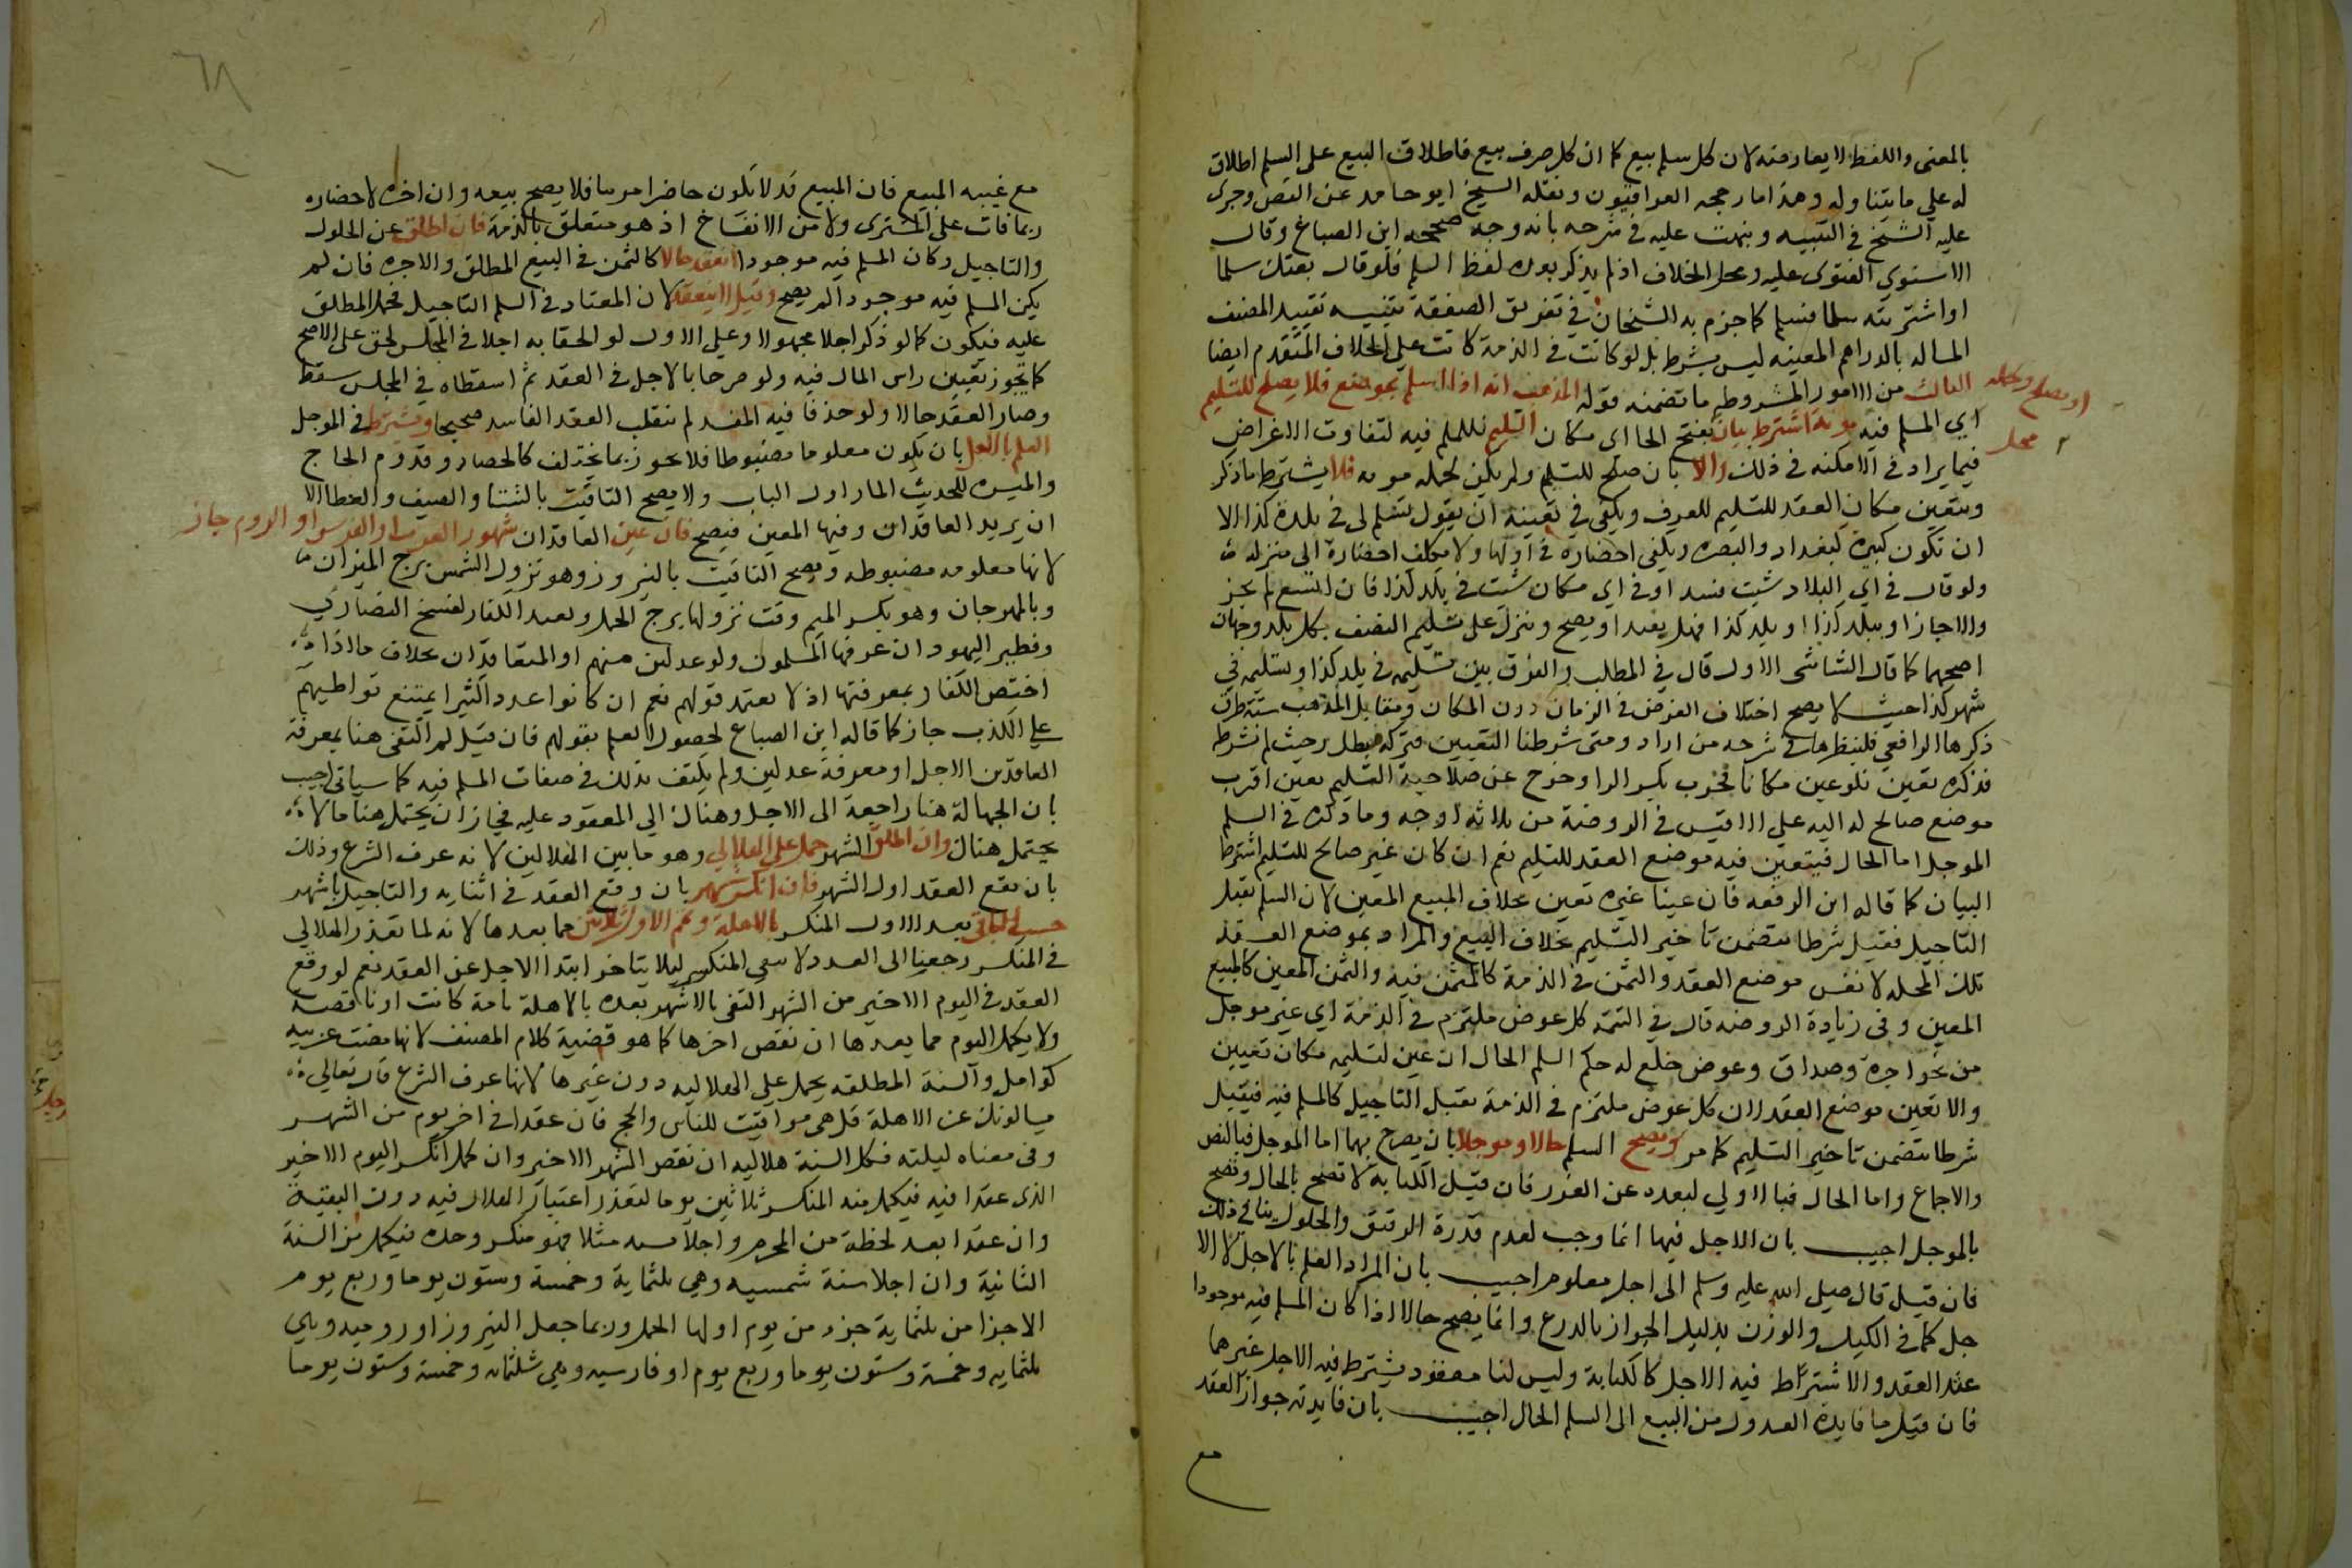 بالمعنى واللفظ لا يعارضه لان كل سلم بيع كما ان كل صرف بيع فاطلاق البيع على السلم اطلاق
له على ما يتناوله وهذا ما رجحه العراقيون ونقله الشيخ ابو حامد عن النص وجرى
عليه الشيخ في التنبيه ونبهت عليه في شرحه بانه وجه صححه ابن الصباغ وقال
الاسنوي الفتوى عليه ومحل الخلاف اذا لم يذكر بعده لفظ السلم فلو قال بعتك سلما
او اشتريته سلما فسلم كما جزم به الشيخان في تفريق الصفقة تنبيه تقييد المصنف
المساله بالدراهم المعينه ليس بشرط بل لو كانت في الذمة كانت على الخلاف المتقدم ايضا
الثالث من الامور المشروطه ما تضمنه قوله المذهب انه اذا اسلم بموضع فلا يصلح للتسليم
او يصلح ولحمله
اي المسلم فيه مونة اشترط بيان بفتح الحا اى مكان التسليم للمسلم فيه لتفاوت الاغراض
محل
فيما يراد في الامكنه في ذلك والا بان صلح للتسليم ولم يكن لحمله مونه فلا يشترط ما ذكر
ويتعين مكان العقد للتسليم للعرف ويكفي في تعيينه ان يقول تسلم لى في بلدة كذا الا
ان تكون كبيرة كبغداد والبصره ويكفي احضاره في اولها ولا يكلف احضاره الى منزله
ولو قال في اي البلاد شيت فسد او في اي مكان شئت في بلد كذا فان اتسع لم يجز
والا جاز او ببلد كذا او بلد كذا فهل يفسد او يصح وينزل على تسليم النصف بكل بلد وجهان
اصحهما كما قال الشاشى الاول قال في المطلب والفرق بين تسليمه في بلد كذا وتسليمه في
شهر كذا حيث لا يصح اختلاف الغرض في الزمان دون المكان ومقابل المذهب ستة طرق
ذكرها الرافعي فلينظرها في شرحه من اراد ومتى شرطنا التعيين فتركه مبطل وحيث لم نشرطه
فذكره تعين فلو عين مكانا فخرب بكسر الرا وخرج عن صلاحية التسليم تعين اقرب
موضع صالح له اليه على الاقيس في الروضة من ثلاثة اوجه وما ذكره في السلم
الموجل اما الحال فيتعين فيه موضع العقد للتسليم نعم ان كان غير صالح للتسليم اشترط
البيان كما قاله ابن الرفعه فان عينا غيره تعين بخلاف المبيع المعين لان السلم يقبل
التاجيل فقبل شرطا يتضمن تاخير التسليم بخلاف البيع والمراد بموضع العقد
تلك المحله لا نفس موضع العقد والثمن في الذمة كالمثمن فيه والثمن المعين كالمبيع
المعين وفى زيادة الروضه قال في التتمه كل عوض ملتزم في الذمة اي غير موجل
من نحو اجرة وصداق وعوض خلع له حكم السلم الحال ان عين لتسليمه مكان تعيين
والا تعين موضع العقد لان كل عوض ملتزم في الذمة يقبل التاجيل كالمسلم فيه فيقبل
شرطا يتضمن تاخير التسليم كما مر ويصح السلم حالا وموجلا بان يصرح بهما اما الموجل فبالنص
والاجماع واما الحال فبالاولي لبعده عن الغرر فان قيل الكتابة لا تصح بالحال وتصح
بالموجل اجيب بان الاجل فيها انما وجب لعدم قدرة الرقيق والحلول ينافي ذلك
فان قيل قال صلى الله عليه وسلم الى اجل معلوم اجيب بان المراد العلم بالاجل لا الا
جل كما في الكيل والوزن بدليل الجواز بالذرع وانما يصح حالا اذا كان المسلم فيه موجودا
عند العقد والا اشترط فيه الاجل كالكتابة وليس لنا معقود يشترط فيه الاجل غيرهما
فان قيل ما فايدة العدول من البيع الى السلم الحال اجيب بان فايدته جواز العقد
مع
٦٨
مع غيبه المبيع فان المبيع قد لا يكون حاضرا مرييا فلا يصح بيعه وان اخره لاحضاره
ربما فات على المشترى ولا من الانفساخ اذ هو متعلق بالذمة فان اطلق عن الحلول
والتاجيل وكان المسلم فيه موجودا انعقد حالا كالثمن في البيع المطلق والاجره فان لم
يكن المسلم فيه موجودا لم يصح وقيل لا ينعقد لان المعتاد في السلم التاجيل فحمل المطلق
عليه فيكون كما لو ذكر اجلا مجهولا وعلى الاول لو الحقا به اجلا في المجلس لحق على الاصح
كما يجوز تعيين راس المال فيه ولو صرحا بالاجل في العقد ثم اسقطاه في المجلس سقط
وصار العقد حالا ولو حذفا فيه المفسد لم ينقلب العقد الفاسد صحيحا ويشترط في الموجل
العلم بالاجل بان يكون معلوما مضبوطا فلا يجوز بما يختلف كالحصاد وقدوم الحاج
والميسره للحديث المار اول الباب ولا يصح التاقيت بالشتا والصيف والعطا الا
ان يريد العاقدان وقتها المعين فيصح فان عين العاقدان شهور العرب او الفرس او الروم جاز
لانها معلومه مضبوطه ويصح التاقيت بالنيروز وهو نزول الشمس برج الميزان
وبالمهرجان وهو بكسر الميم وقت نزولها برج الحمل وبعيد الكفار لفسخ النصارى
وفطير اليهود ان عرفها المسلمون ولو عدلين منهم او المتعاقدان بخلاف ما اذا
اختص الكفار بمعرفتها اذ لا يعتمد قولهم نعم ان كانوا عددا كثيرا يمتنع تواطيهم
على الكذب جاز كما قاله ابن الصباغ لحصول العلم بقولهم فان قيل لم اكتفى هنا بمعرفة
العاقدين الاجل او معرفة عدلين ولم يكتف بذلك في صفات المسلم فيه كما سياتى اجيب
بان الجهالة هنا راجعة الى الاجل وهناك الي المعقود عليه فجاز ان يحتمل هنا ما لا
يحتمل هناك وان اطلق الشهر حمل علي الهلالي وهو ما بين الهلالين لانه عرف الشرع وذلك
بان يقع العقد اول الشهر فان انكسر شهر بان وقع العقد في اثنايه والتاجيل باشهر
حسب الباقي بعد الاول المنكسر بالاهلة وتمم الاول ثلاثين مما بعدها لانه لما تعذر الهلالي
في المنكسر رجعنا الى العدد ولا يلغى المنكسر ليلا يتاخر ابتدا الاجل عن العقد نعم لو وقع
العقد في اليوم الاخير من الشهر اكتفى بالاشهر بعده بالاهلة تامة كانت او ناقصة
ولا يكمل اليوم مما بعدها ان نقص اخرها كما هو قضية كلام المصنف لانها مضت عربيه
كوامل والسنة المطلقه يحمل على الهلاليه دون غيرها لانها عرف الشرع قال تعالى
يسالونك عن الاهلة قل هى مواقيت للناس والحج فان عقدا في اخر يوم من الشهر
وفى معناه ليلته فكل السنة هلاليه ان نقص الشهر الاخير وان كمل انكسر اليوم الاخير
الذى عقدا فيه فيكمل منه المنكسر ثلاثين يوما لتعذر اعتبار الهلال فيه دون البقية
وان عقدا بعد لحظة من المحرم واجلا بسنه مثلا فهو منكسر وحده فيكمل من السنة
الثانية وان اجلا سنة شمسيه وهي ثلثماية وخمسة وستون يوما وربع يوم
الا جزا من ثلثماية جزء من يوم اولها الحمل وربما جعل النيروز او روميه وهي
ثلثمايه وخمسة وستون يوما وربع يوم او فارسيه وهي ثلثمائه وخمسة وستون يوما